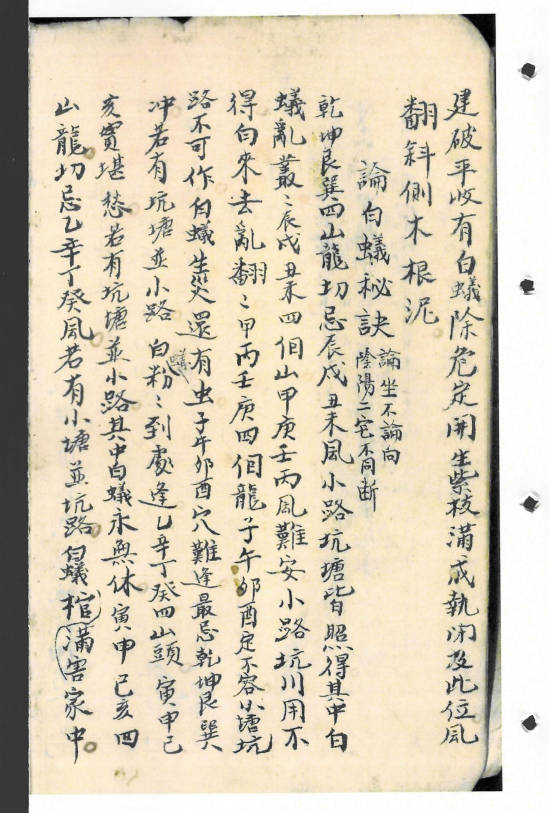 建破平收有白蟻除危定開生紫枝滿成執闭及此位風
翻斜側木根泥
論白蟻秘訣
論坐不論向
陰陽二宅不同断
乾坤艮巽四山龍切忌辰戌丑未風小路坑塘皆照得其中白
蟻亂叢〻辰戌丑未四個山甲庚壬丙風難安小路坑川用不
得白來去亂翻〻甲丙壬庚四個龍子午卯酉定不容小塘坑
路不可作白蟻生災還有虫子午卯酉穴難逢最忌乾坤艮巽
冲若有坑塘並小路白蟻粉〻到處逢乙辛丁癸四山頭寅申巳
亥實堪愁若有坑塘並小路其中白蟻永無休寅申巳亥四
山龍切忌乙辛丁癸風若有小塘並坑路白蟻棺滿害家中